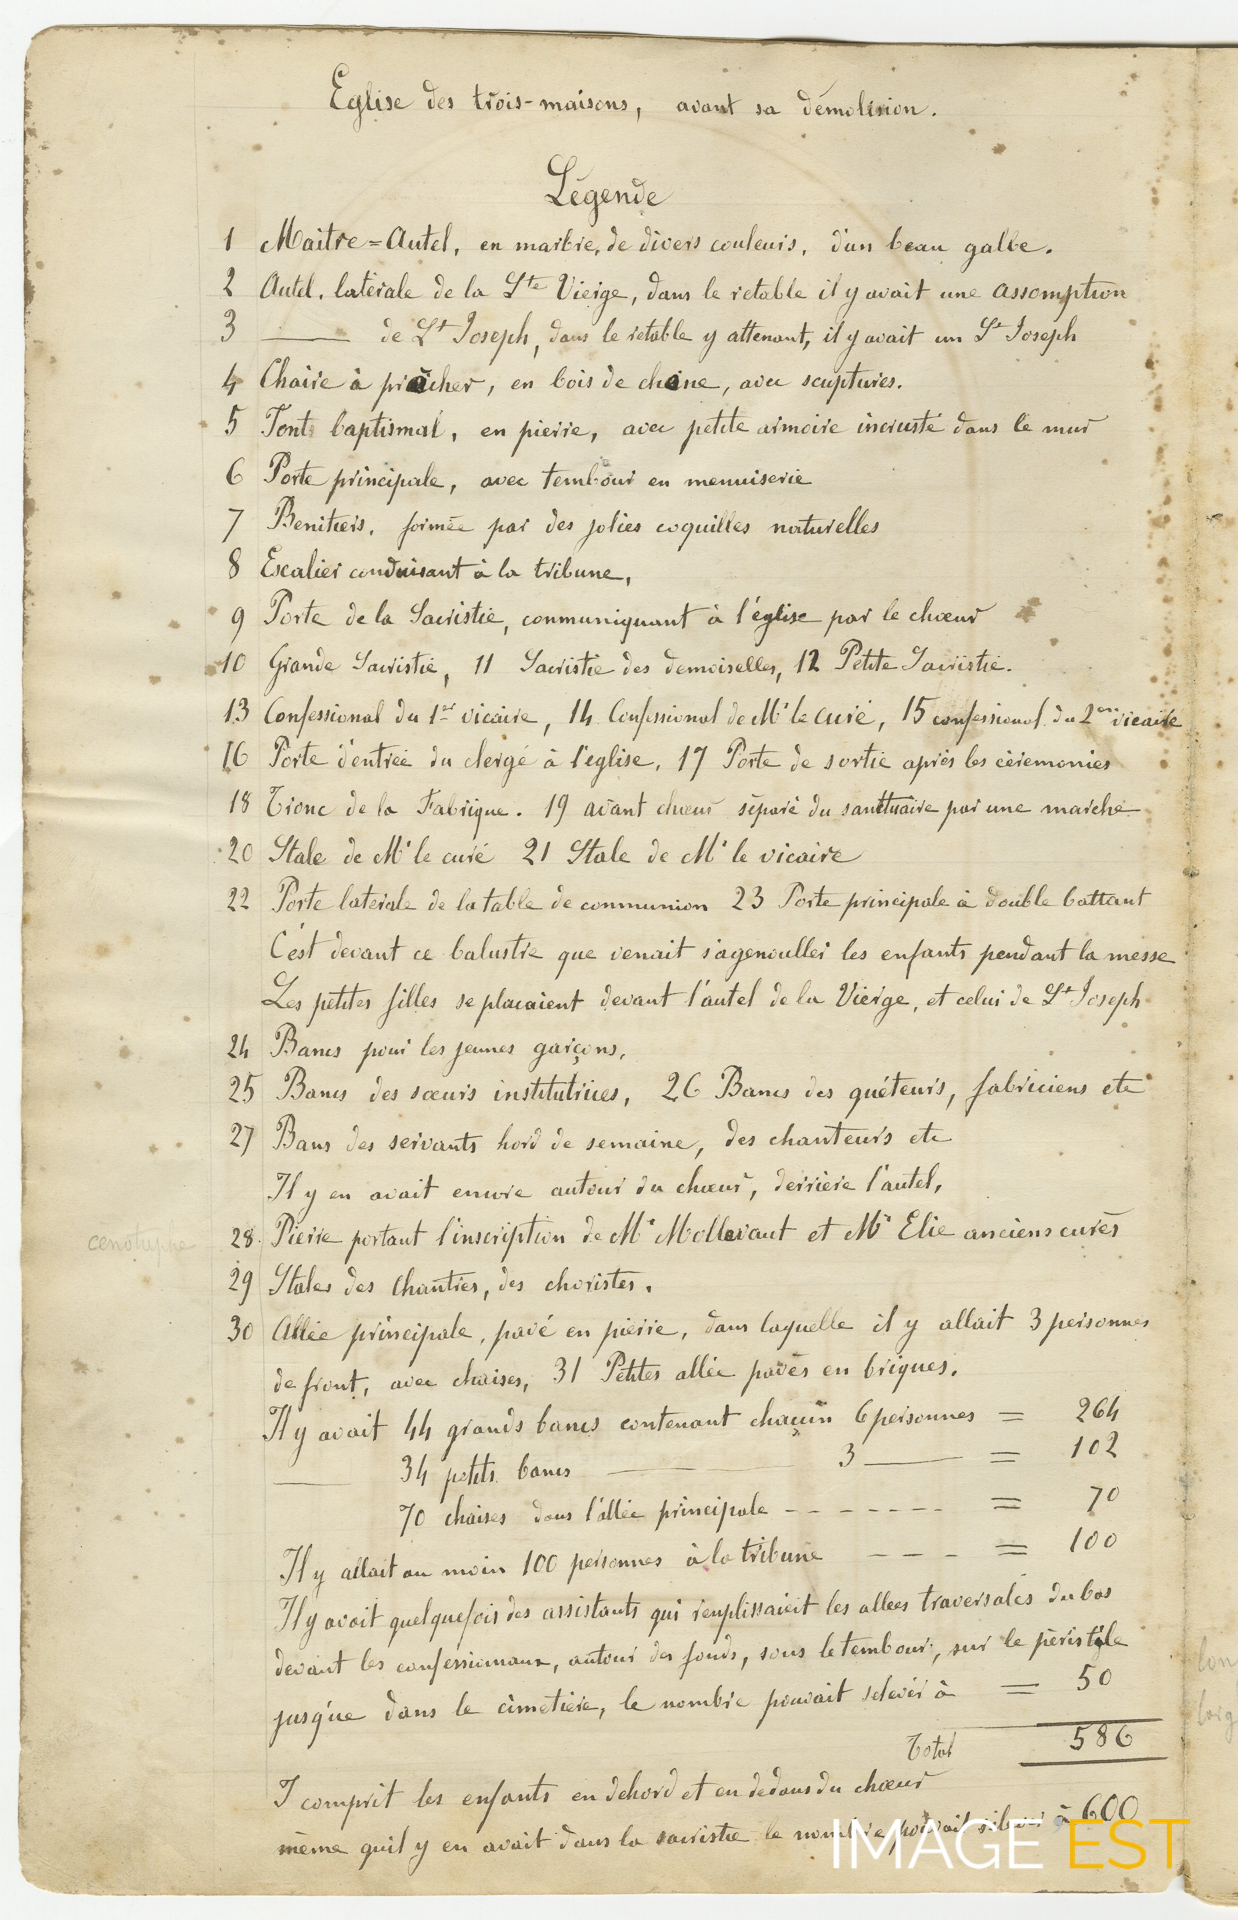 Eglise des trois-maisons, avant sa démolision.
Légende
1 Maitre=Autel, en marbre, de divers couleurs, d'un beau galbe.
2 Autel. latérale de la Ste Vierge, dans le retable il y avait une assomption
3 —— de St Joseph, dans le retable y attenant, il y avait un St Joseph
4 Chaire à prêcher, en bois de chêne, avec scuptures.
5 Font baptismal, en pierre, avec petite armoire incrusté dans le mur
6 Porte principale, avec tembour en menuiserie
7 Benitiers, formée par des jolies coquilles naturelles
8 Escalier conduisant à la tribune,
9 Porte de la Sacristie, communiquant à l'église par le chœur
10 Grande Sacristie, 11 Sacristie des demoiselles, 12 Petite Sacristie.
13 Confessional du 1er vicaire, 14 Confessional de Mr le curé, 15 confessional du 2em vicaire
16 Porte d'entrée du clergé à l'eglise, 17 Porte de sortie après les cérémonies
18 Tronc de la Fabrique. 19 avant chœur séparé du sanctuaire par une marche
20 Stale de Mr le curé 21 Stale de Mr le vicaire
22 Porte latérale de la table de communion 23 Porte principale à double battant
C'est devant ce balustre que venait s'agenouller les enfants pendant la messe
Les petites filles se placaient devant l'autel de la Vierge, et celui de St Joseph
24 Bancs pour les jeunes garçons,
25 Bancs des sœurs institutrices, 26 Bancs des quéteurs, fabriciens etc
27 Bans des servants hord de semaine, des chanteurs etc
Il y en avait encore autour du chœur, derriere l'autel,
cenotaphe
28 Pierre portant l'inscription de Mr Mollevaut et Mr Elie anciens curés
29 Stales des Chantres, des choristes.
30 Allée principale, pavé en pierre, dans laquelle il y allait 3 personnes
de front, avec chaises, 31 Petites allée pavés en briques.
Il y avait 44 grands bancs contenant chaçun 6 personnes = 264
—— 34 petits bancs —— 3 —— = 102
70 chaises dans l'allée principale - - - - - - - = 70
Il y allait au moin 100 personnes à la tribune - - - = 100
Il y avait quelquefois des assistants qui remplissaient les allees traversales du bas
devant les confessionaux, autour des fonds, sous le tembour, sur le péristyle
jusqu'e dans le cimetière, le nombre pouvait s'elever à = 50
Total 586
I comprit les enfants en dehord et en dedans du chœur
mème quil y en avait dans la sacristie le nombre pouvait s'élever à 600
lon
larg
IMAGE EST